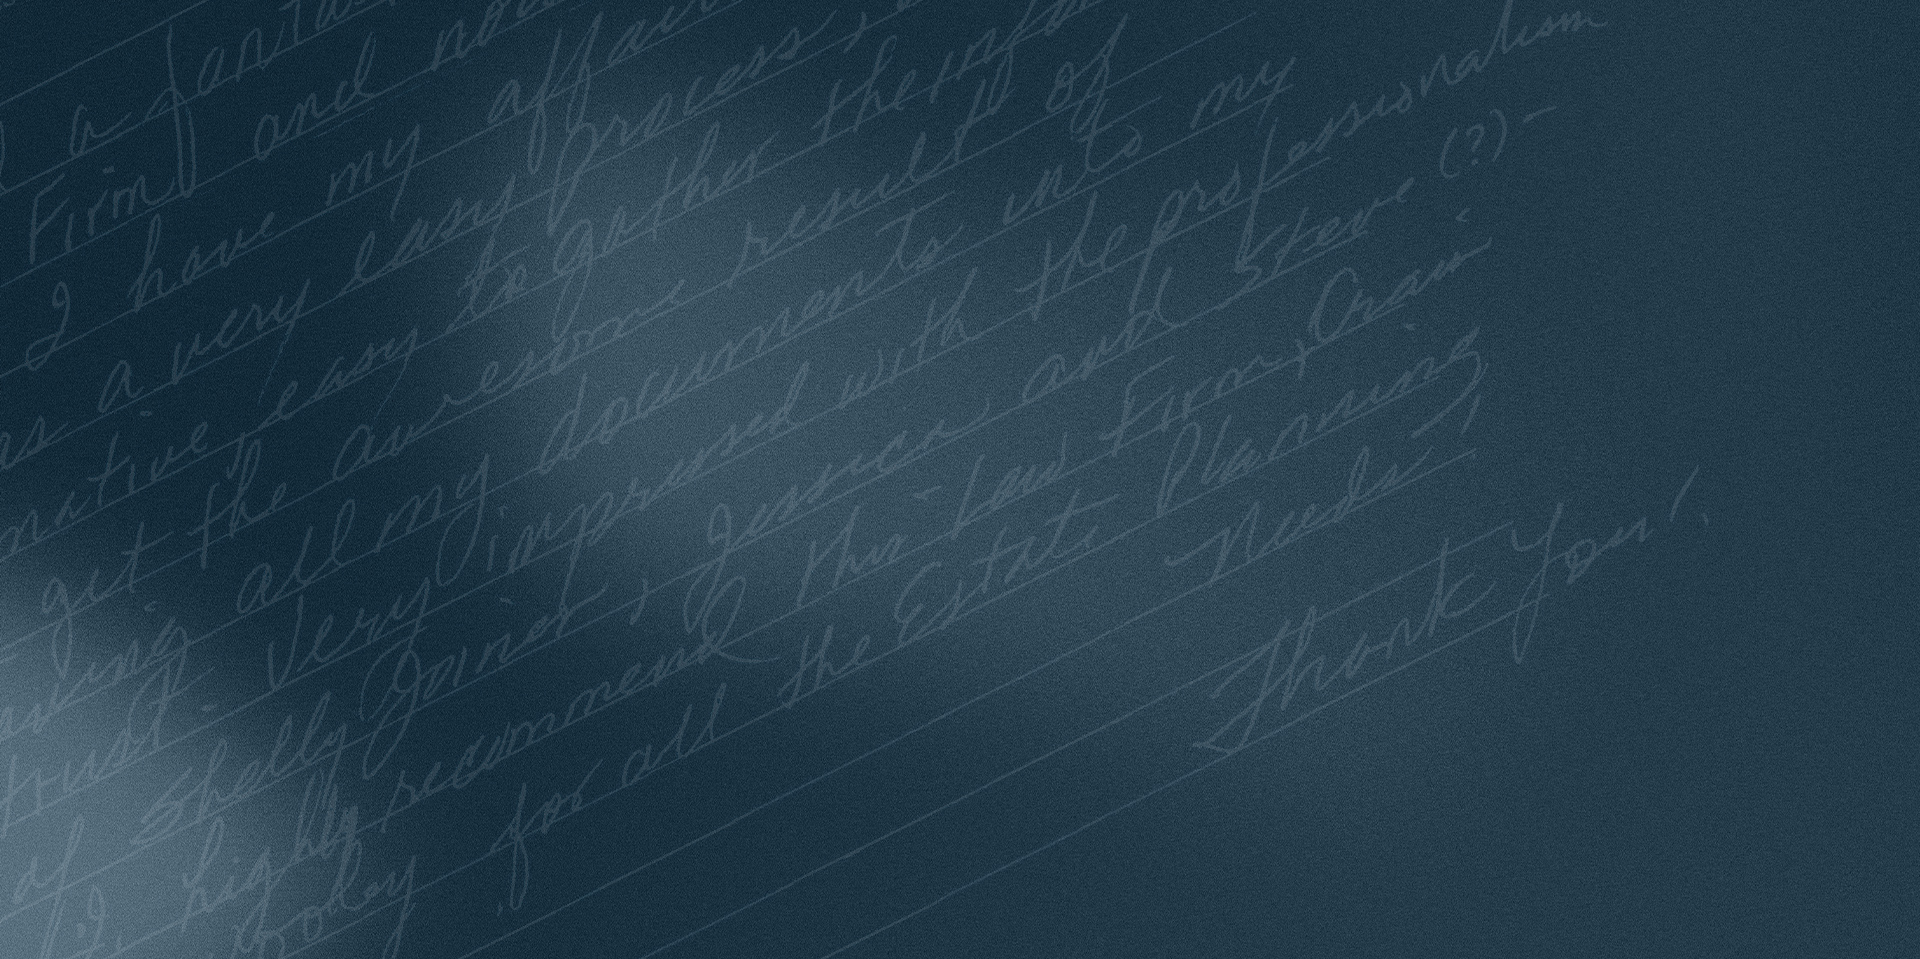 a
Firm and
I have my
as a very easy process,
easy to gather the
get the awesome result of
all my documents into my
trust. Very impressed with the professionalism
of Shelly Joiner, Jessica and Steve (?) -
I highly recommend this - Law Firm,
for all the Estate Planning
Needs
Thank You!